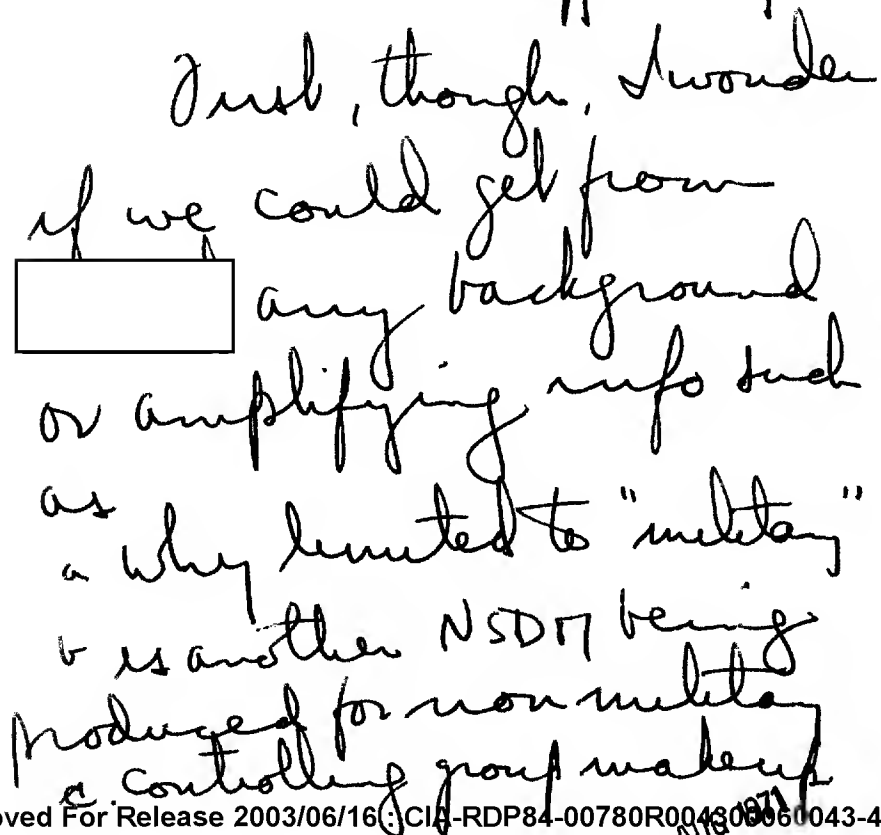 First, though, I wonder
if we could get from
any background
or amplifying info such
as
a why limited to "military"
b is another NSDM being
produced for non military
c. controlling group makeup
oved For Release 2003/06/16 : CIA-RDP84-00780R004300060043-4
1971